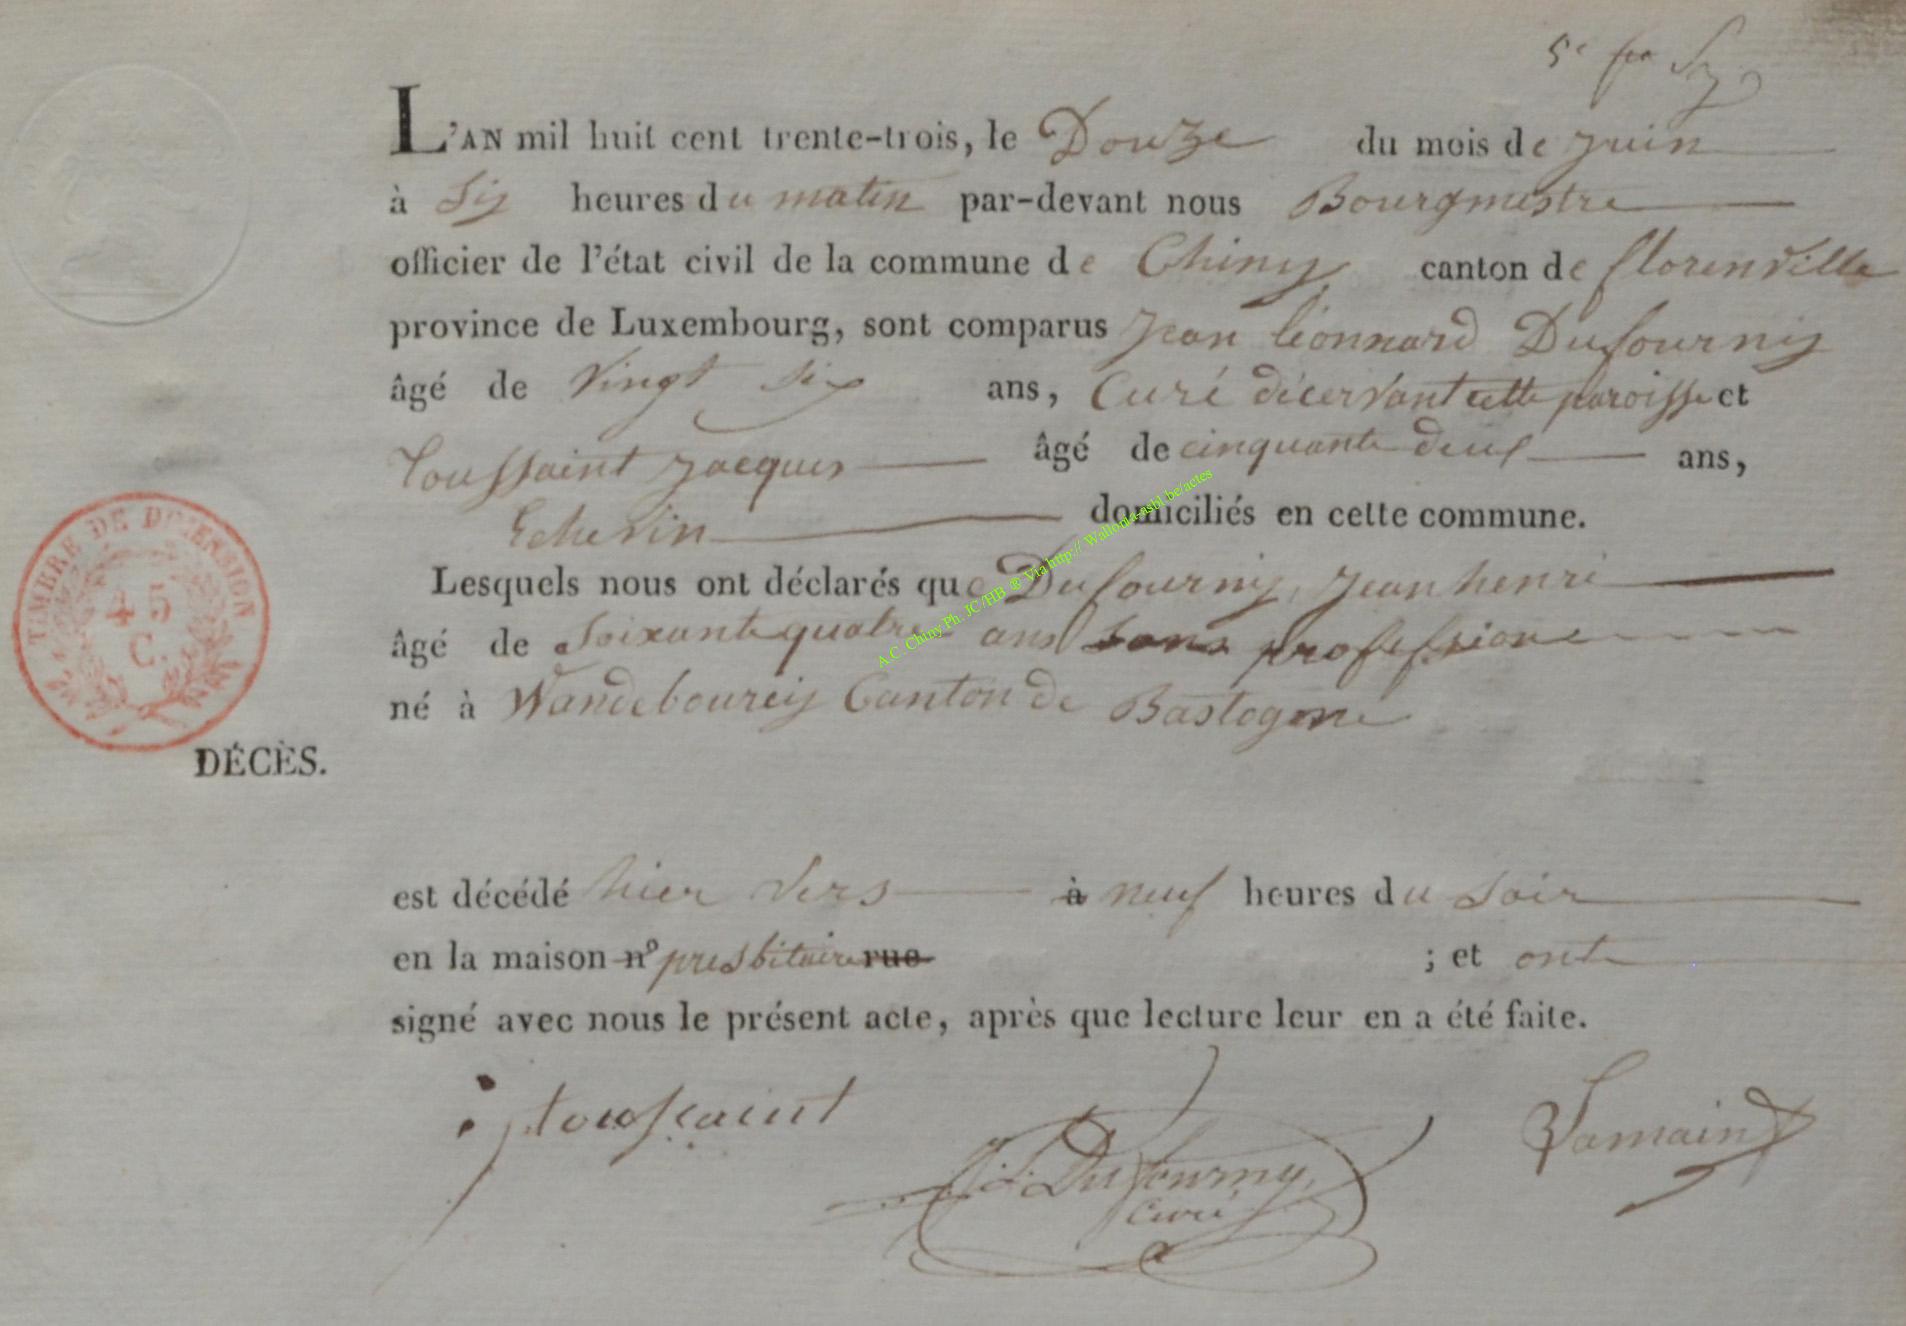 L'AN mil huit cent trente-trois, le Douze du mois de juin
à Six heures du matin par-devant nous Bourgmestre
officier de l'état civil de la commune de Chiny canton de florenville
province de Luxembourg, sont comparus Jean léonnard Dufourny
âgé de Vingt Six ans, Curé décervant cette paroisse et
Toussaint Jacques âgé de cinquante deux ans,
Echevin domiciliés en cette commune.
Lesquels nous ont déclarés que Dufourny, Jean henri
âgé de Soixante quatre ans sans profession
né à Wandebourcy Canton de Bastogne
TIMBRE DE DIMENSION
45
C.
DÉCÈS.
est décédé hier vers à neuf heures du soir
en la maison n° presbitaire rue ; et ont
signé avec nous le présent acte, après que lecture leur en a été faite.
j toussaint
J. L. Dufourny,
curé
Jamain
A.C. Chiny Ph. JC/HB ® Via http:// Wallonia-asbl.be/actes